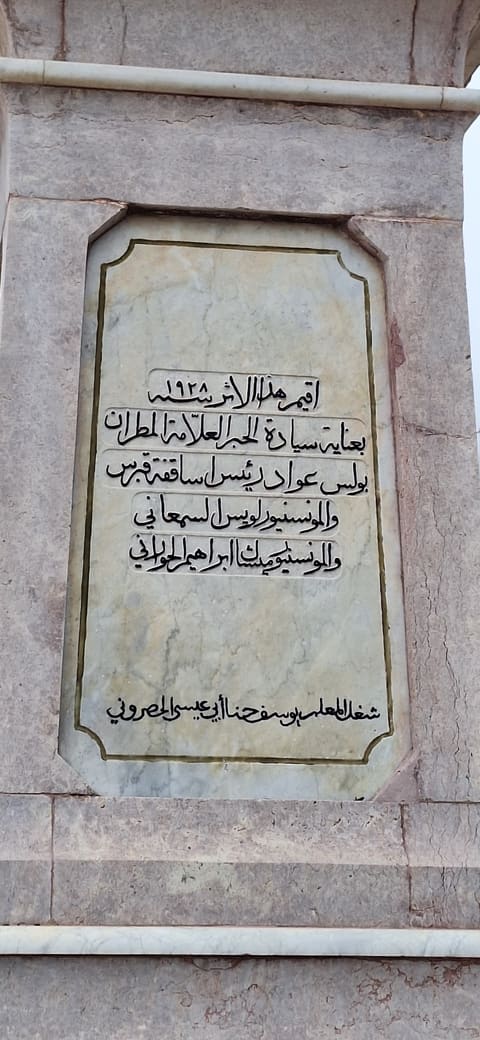 اقيم هذا الاثر سنه ١٩٢٨
بعناية سيادة الحبر العلّامة المطران
بولس عواد رئيس اساقفة قبرس
والمونسنيور لويس السمعاني
والمونسنيور ابراهيم الحوراني
شغل المعلم يوسف حنا أبي عيسى الحصروني